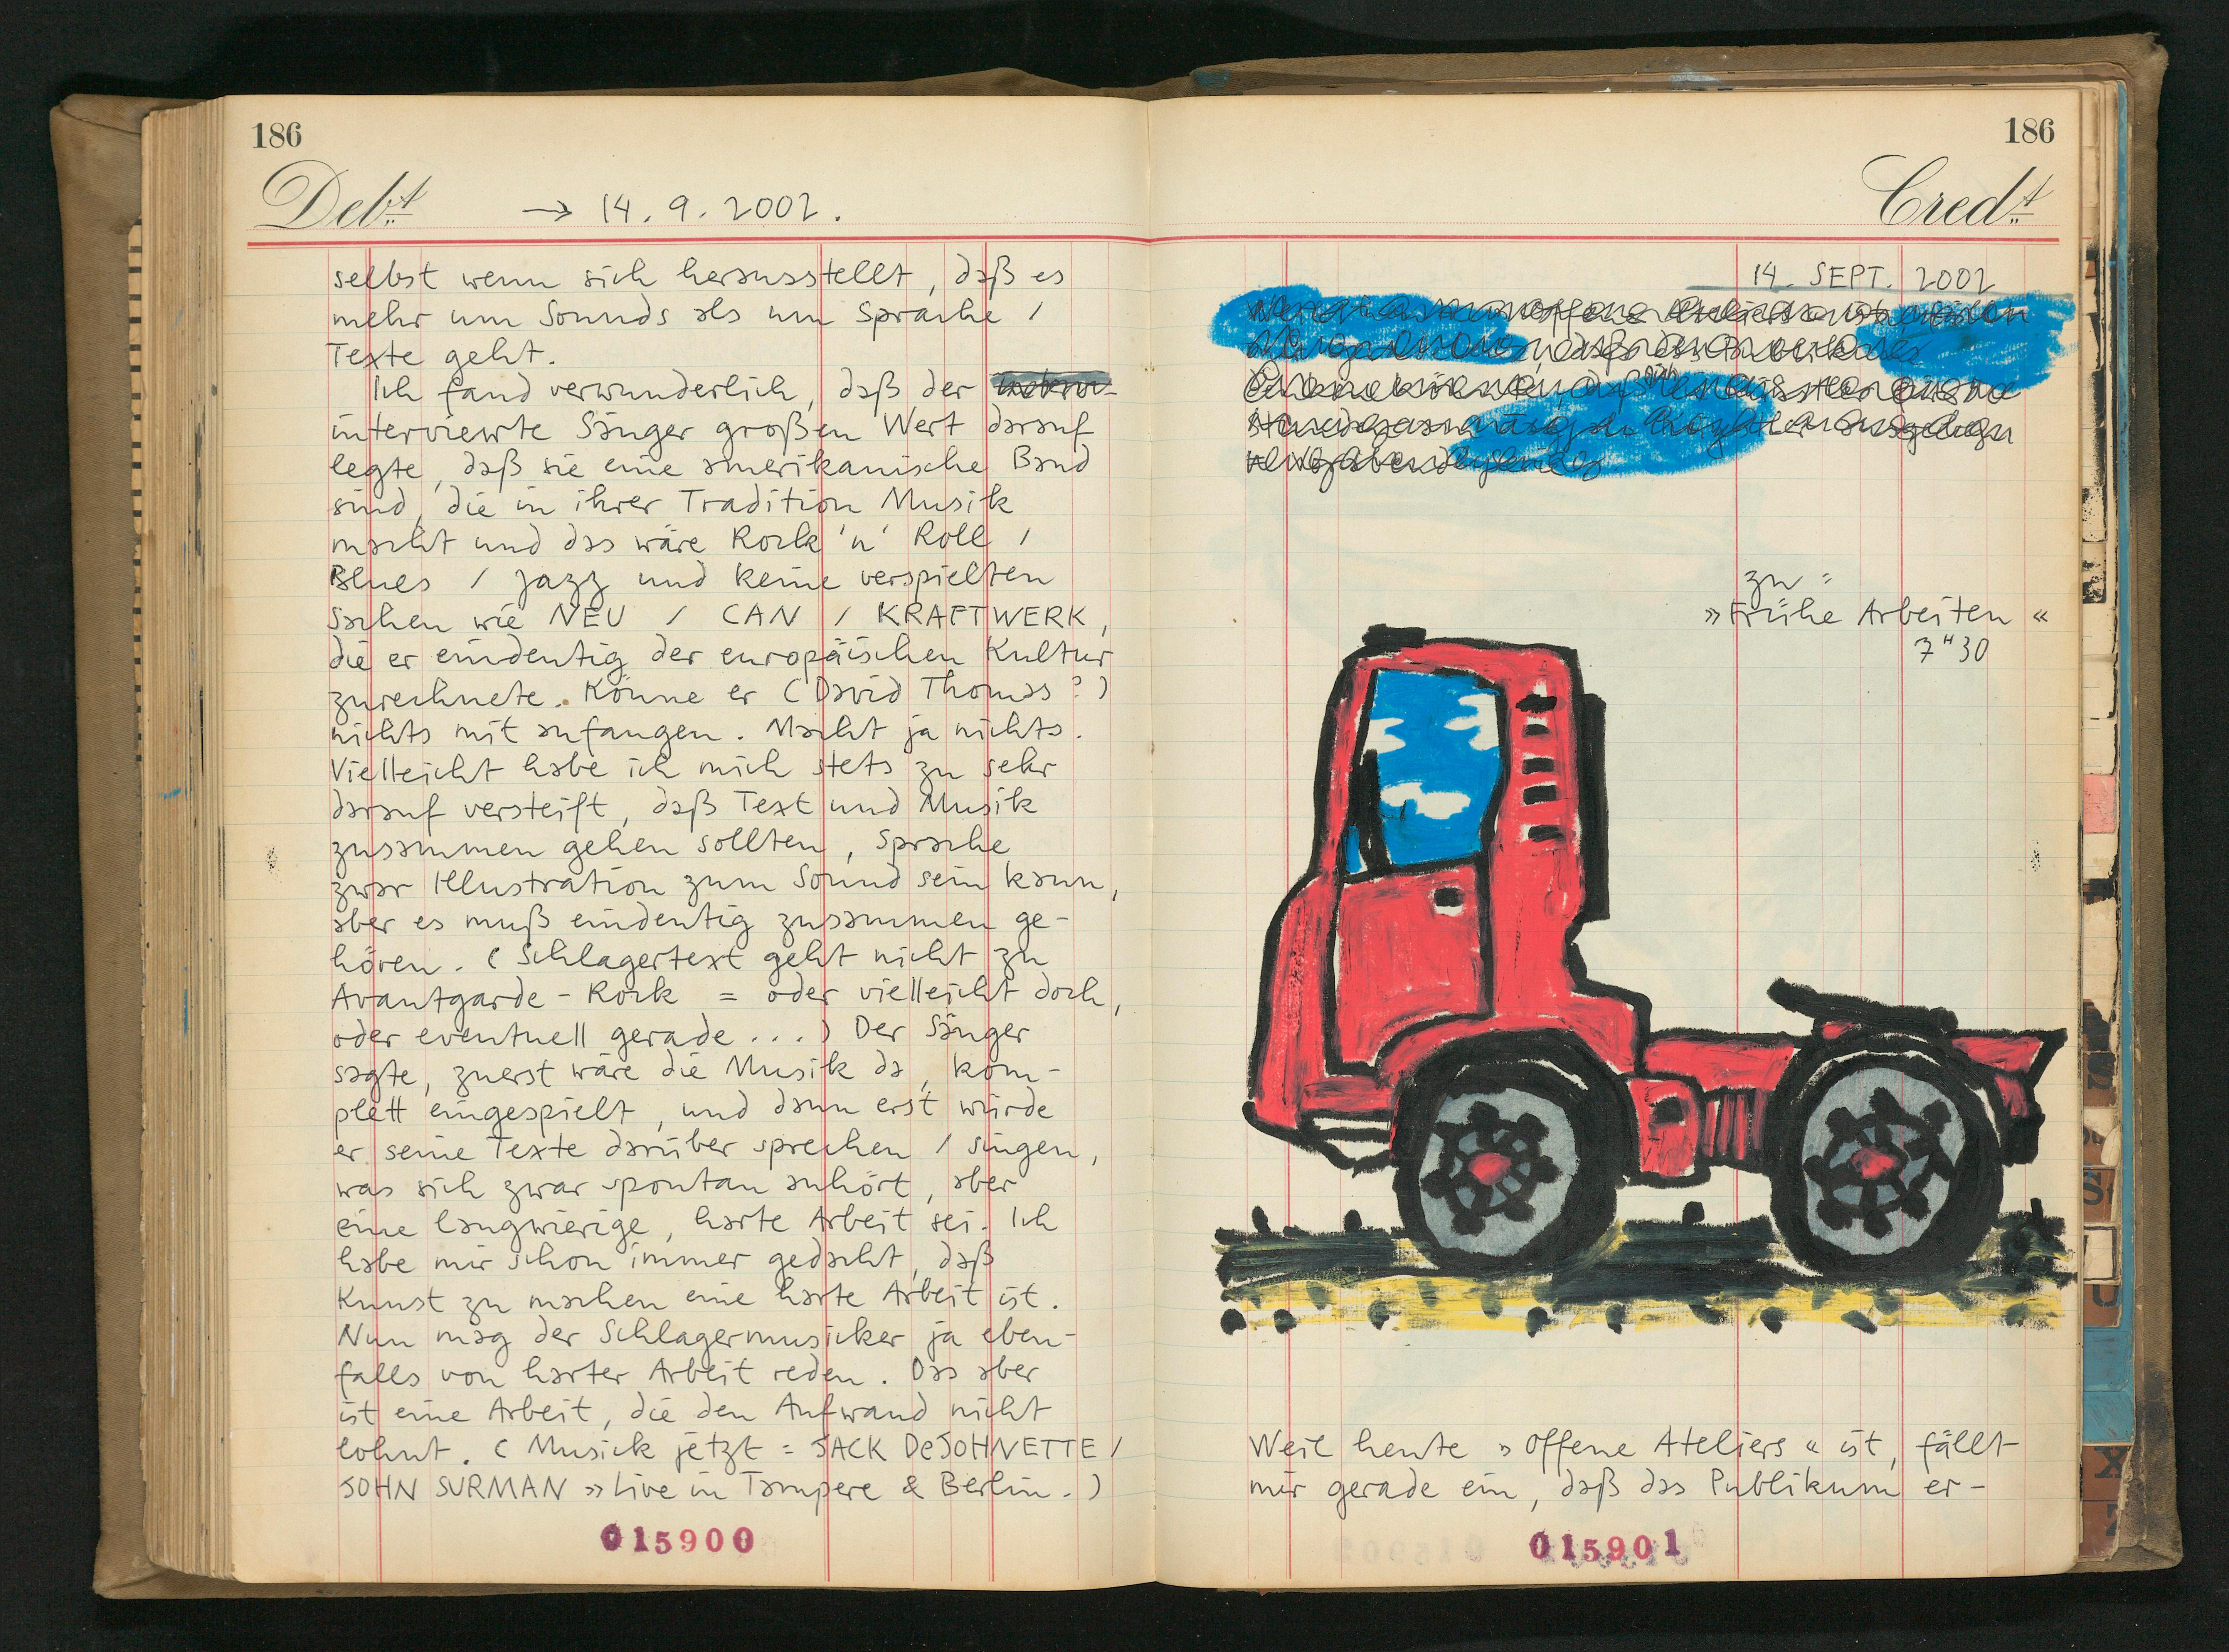 186
Debt
→ 14.9.2002.
selbst wenn sich herausstellt, daß es
mehr um Sounds als um Sprache /
Texte geht.
Ich fand verwunderlich, daß der
interviewte Sänger großen Wert darauf
legte, daß sie eine amerikanische Band
sind, die in ihrer Tradition Musik
macht und das wäre Rock 'n' Roll /
Blues / Jazz und keine verspielten
Sachen wie NEU / CAN / KRAFTWERK,
die er eindeutig der europäischen Kultur
zurechnete. Könne er (David Thomas?)
nichts mit anfangen. Macht ja nichts.
Vielleicht habe ich mich stets zu sehr
darauf versteift, daß Text und Musik
zusammen gehen sollten, Sprache
zwar Illustration zum Sound sein kann,
aber es muß eindeutig zusammen ge-
hören. (Schlagertext geht nicht zu
Avantgarde-Rock = oder vielleicht doch,
oder eventuell gerade...) Der Sänger
sagte, zuerst wäre die Musik da, kom-
plett eingespielt, und dann erst würde
er seine Texte darüber sprechen / singen,
was sich zwar spontan anhört, aber
eine langwierige, harte Arbeit sei. Ich
habe mir schon immer gedacht, daß
Kunst zu machen eine harte Arbeit ist.
Nun mag der Schlagermusicker ja eben-
falls von harter Arbeit reden. Das aber
ist eine Arbeit, die den Aufwand nicht
lohnt. (Musick jetzt = JACK DeJOHNETTE /
JOHN SURMAN »Live in Tampere & Berlin.)
015900
186
Credt
14. SEPT. 2002
zu =
»Frühe Arbeiten«
7H30
Weil heute »Offene Ateliers« ist, fällt
mir gerade ein, daß das Publikum er-
015901